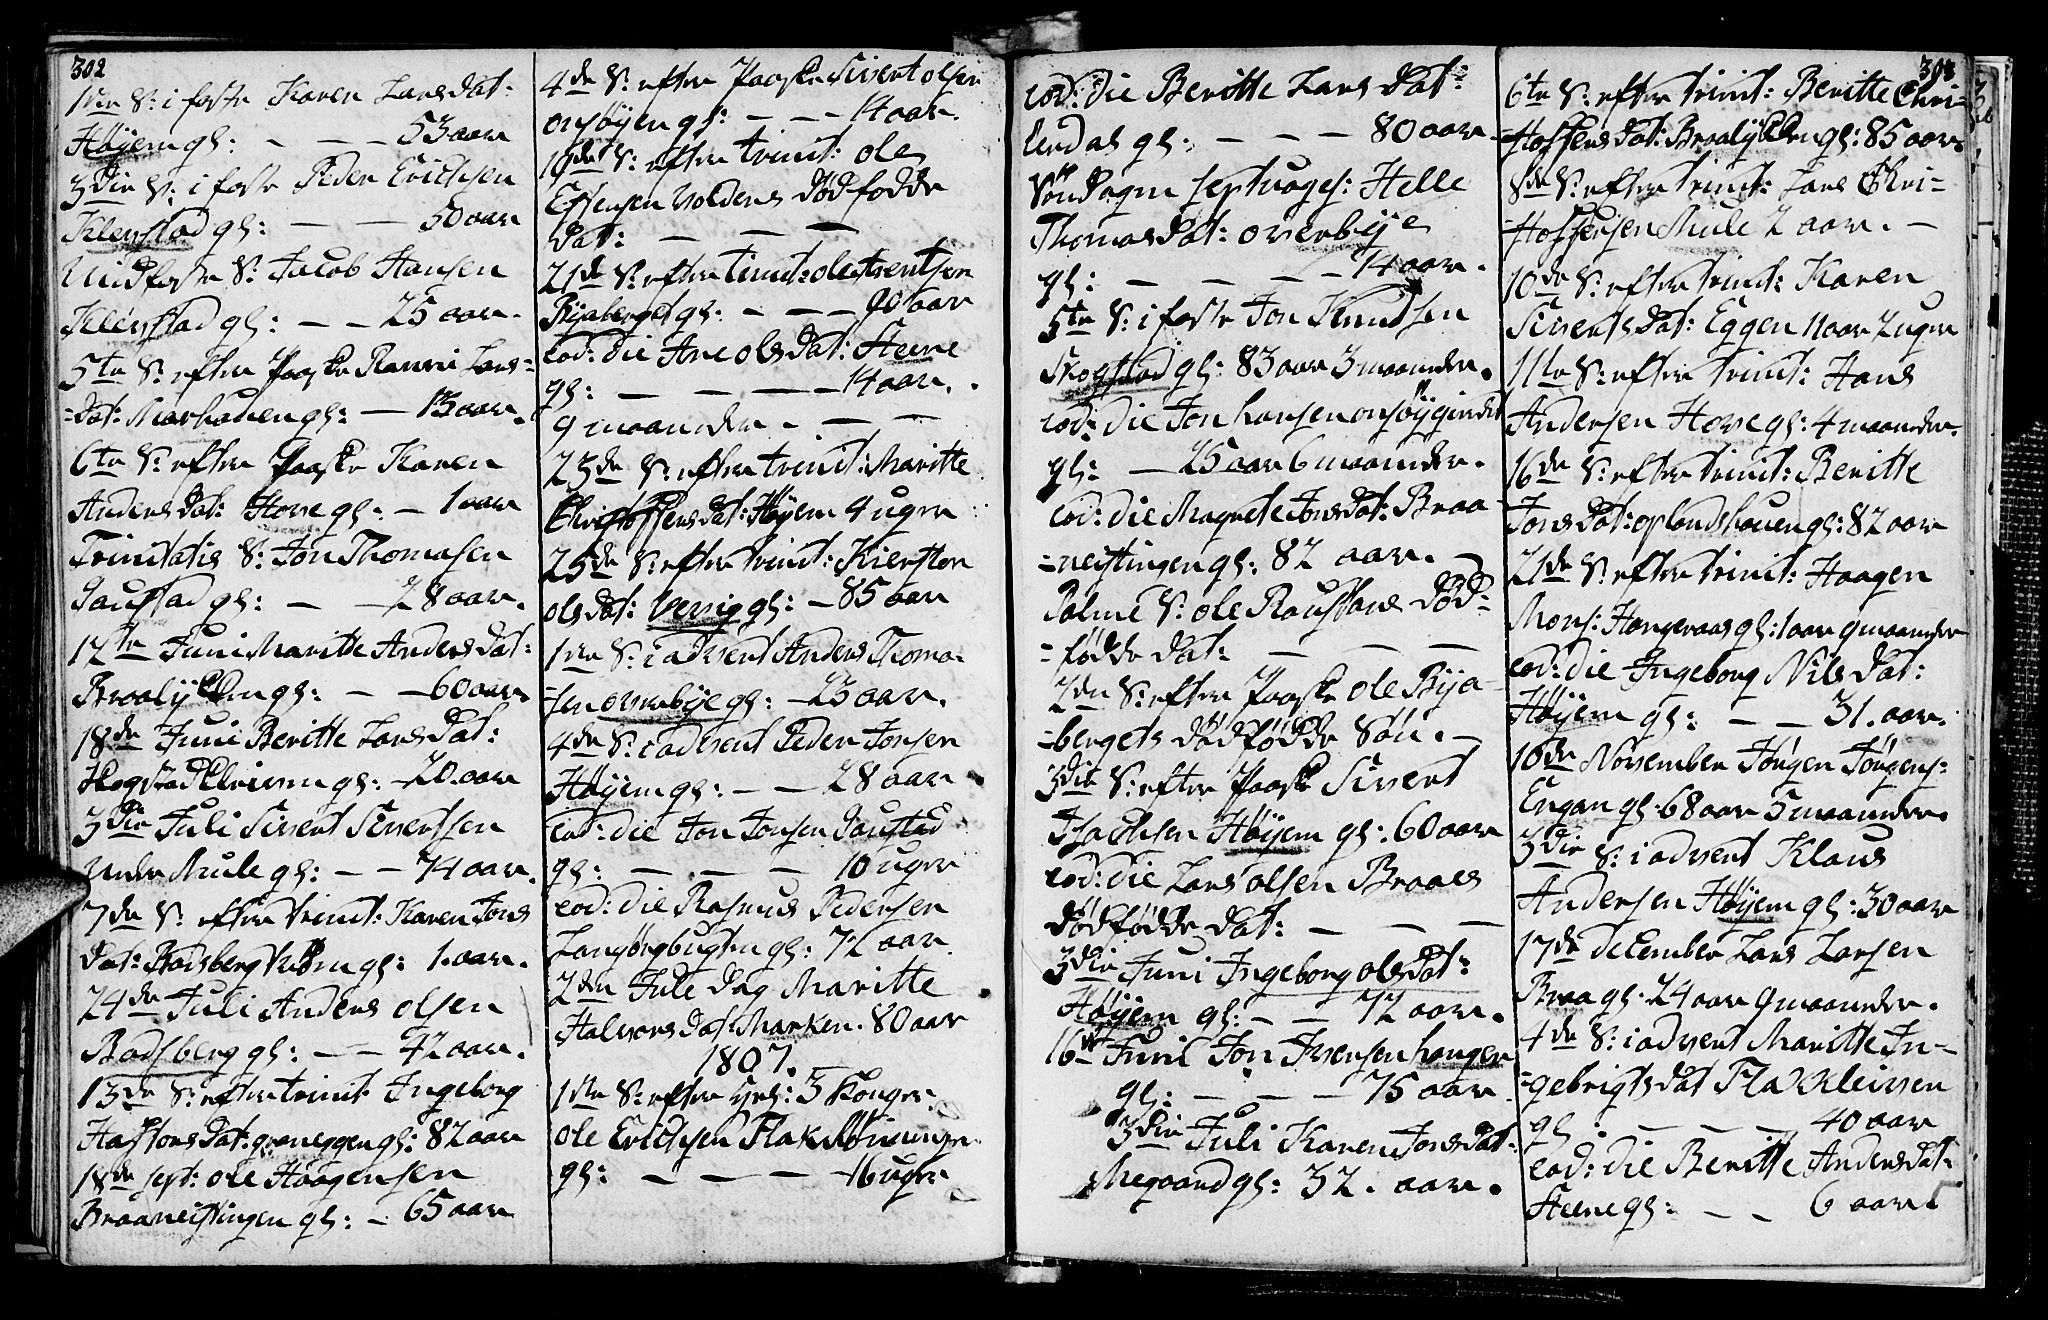 302
1ste S: i faste Karen Larsdat:
Høÿem gl: — — — 53 aar
3die S: i faste Peder Erichsen
Klefstad gl: — — 50 aar
Midfaste S: Jacob Hansen
Klefstad gl: — — 25 aar.
5te S: efter Paaske Ranni Lars=
=dat: Morhauen gl: — 13 aar.
6te S: efter Paaske Karen
Andersdat: Hove gl: — 1 aar
Trinitatis S: Jon Thomasen
Saustad gl: — — 28 aar.
12te Juni Maritte Andersdat:
Braalÿkken gl: — — 60 aar
18de Juni Beritte Larsdat:
gl: — 20. aar
3die Juli Sivert Sivertsen
Under Mule gl: — — 74 aar.
7de S: efter trinit: Karen Jons
dat: Bodsberg gl: 1. aar.
24de Juli Anders Olsen
Bodsberg gl: — — 42 aar.
13de S: efter trinit Ingeborg
dat: graneggen gl: 82 aar
18de sept: ole Haagensen
Braaneistingen gl: — 65 aar
4de S: efter Paaske Sivert olsen
onsøÿen gl: — — — 14 aar.
19de S: efter trinit: ole
Estensen Voldens dødfødde
dat: — — —
21de S: efter trinit: ole
Bÿaberget gl: — — — 90 aar
eod: die Ane olsdat: Steene
gl: — — — — 14 aar.
9 maaneder. — —
23de S: efter trinit: Maritte
Christoffersdat: Høÿem 4 uger
25de S: efter trinit: Kiersten
olsdat: Vessig gl: — 85 aar
1ste S: i advent Anders Thoma=
=sen overbÿe gl: — 23 aar.
4de S: i advent Peder Jonsen
Høÿem gl: — — 28 aar
eod: die Jon Jonsen Saustad
gl: — — — 10 uger
eod: die Rasmus Pedersen
Langørgbugten gl: 72 aar
2den Jule dag Maritte
Halvorsdat: Marken. 80 aar
1807.
1ste S: efter hel: 3 Konger
Ole Erichsen Flak
gl: — — — 16 uger
303
eod: die Beritte Lars dat:
Lerdal gl: — — — 80 aar
Søndagen septuages: Helle
Thomasdat: overbÿe
gl: — — — — 14 aar.
5te S: i faste Jon Knudsen
Skogstad gl: 83 aar 3 maaneder.
eod: die Jon Larsen
gl: — 25 aar 6 maaneder.
eod: die Magnete Jonsdat: Braa=
=neistingen gl: 82 aar. —
Palme S: ole Raustans død=
=fødde dat: — — —
2den S: efter Paaske ole Bÿa=
=bergets dødfødde Søn. —
3die S: efter Paaske Sivert
Isachsen Høÿem gl: 60 aar
eod: die Lars olsen Braaes
dødfødde dat: — — —
3die Juni Ingeborg olsdat:
Høÿem gl: — — 72 aar.
16de Juni Jon Ivensen
gl: — — — 75 aar
3die Juli Karen Jonsdat:
Megaard gl: 32. aar.
6te S: efter trinit: Beritte Chri=
=stoffersdat: Braalÿkken gl: 85 aar.
8de S: efter trinit: Lars Chri=
=stoffersen Mule 2 aar. —
10de S: efter trinit: Karen
Sivertsdat: Eggen 11 aar 2 uger
11te S: efter trinit: Hans
Andersen Hove gl: 4 maaneder.
16de S: efter trinit: Beritte
Jonsdat: oplandshauen gl: 82 aar
21de S: efter trinit: Haagen
Mons: Hongeraas gl: 1 aar 9 maaneder
eod: die Ingeborg Nilsdat:
Høÿem gl: — — 31. aar.
10de November Jørgen Jørgens:
Engan gl. 68 aar 5 maaneder.
3die S: i advent Klaus
Andersen Høÿem gl: 30 aar
17de december Lars Larsen
Braa gl. 24 aar 9 maaneder.
4de S: i advent Maritte In=
=gebrigtsdat Flakkleiven
gl: — — — 40 aar
eod: die Beritte Andersdat:
Steene gl: — — 6 aar.